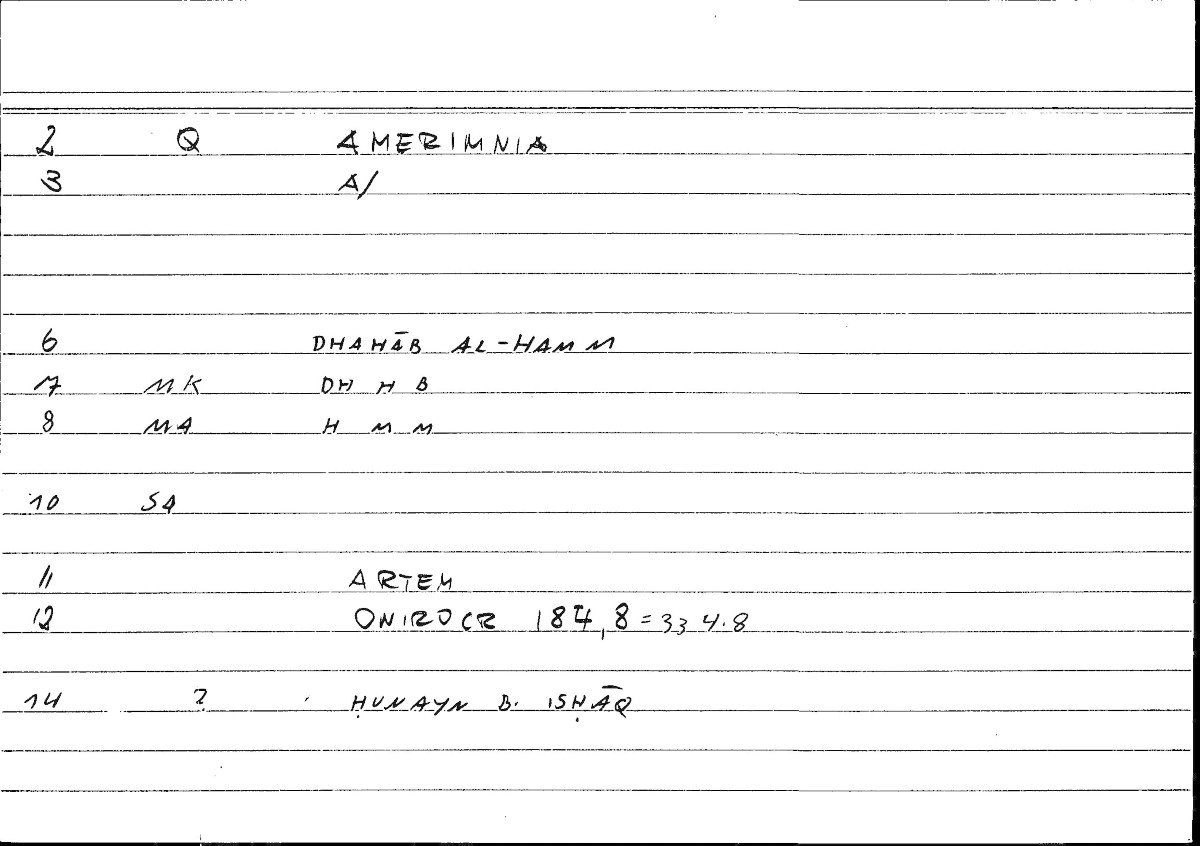 2 Q AMERIMNIA
3 A/
6 DHAHĀB AL-HAMM
17 MK DH H B
8 MA H M M
10 SA
11 ARTEM
12 ONIROCR 184,8 = 334.8
14 ? ḤUNAYN B. ISḤĀQ